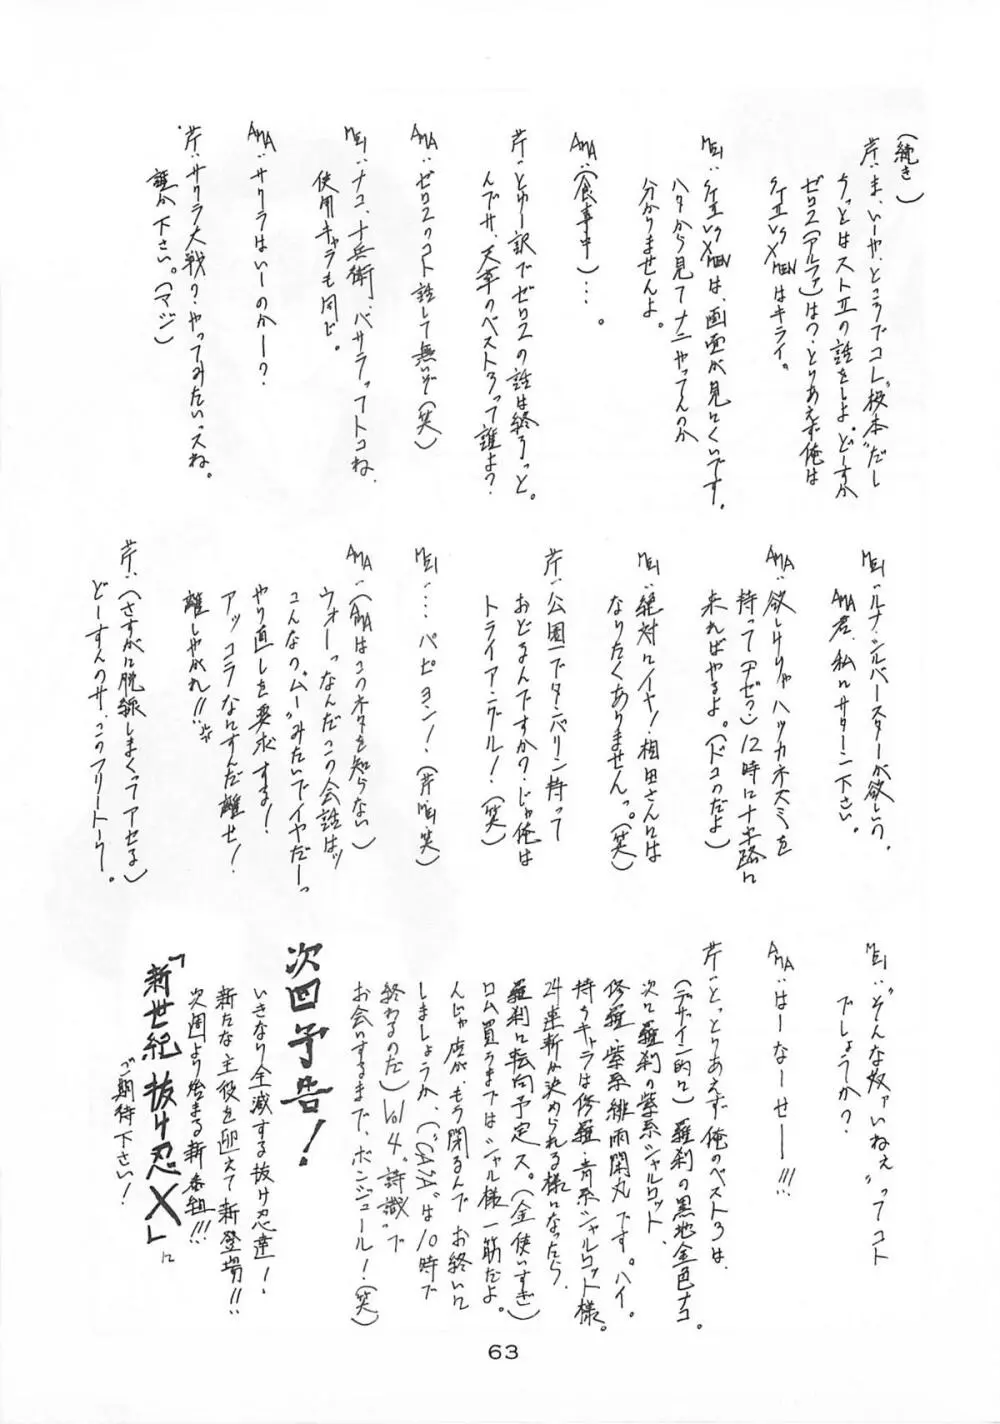 (続き)
芹:ま、いーや、ところでコレ〝校本〟だし
ちっとはストⅡの話をしよ。どーすか
ゼロ2(アルファ)は?・とりあえず俺は
X MENはキライ。
MEI: X MENは、画面が見にくいです。
ハタから見てナニやってんのか
分かりませんよ。
AMA:(食事中)…。
芹:とゆー訳でゼロ2の話は終ろっと。
んでサ、天草のベスト3って誰よ?
AMA:ゼロ2のコト話して無いぞ(笑)
MEI:ナコ、十兵衛、バサラってトコね、
使用キャラも同じ。
AMA:サクラはいーのかー?
芹:サクラ大戦?・やってみたいっスね。
誰か下さい。(マジ)
MEI:ルナ・シルバースターが欲しいの、
AMA君、私にサターン下さい。
AMA:欲しけりゃハツカネズミを
持って 12時に十字路に
来ればやるよ。(ドコのだよ)
MEI:絶対にイヤ!相田さんには
なりたくありませんっ。(笑)
芹:公園でタンバリン持って
おどるんですか?・じゃ俺は
トライアングル!(笑)
MEI:…パピヨン!(芹・MEI笑)
AMA:(AMAはこのネタを知らない)
ウォーっなんだこの会話はッ
こんなの〝ムー〟みたいでイヤだーっ
やり直しを要求する!
アッコラなにすんだ離せ!
離しやがれ!!
芹:(さすがに脱線しまくってアセる)
どーすんのサ、このフリートーク。
MEI:〝そんな奴ァいねぇ〟ってコト
でしょうか?
AMA:はーなーせー!!!
芹:とっとりあえず俺のベスト3は、
(デザイン的に)羅刹の黒地金色ナコ。
次に羅刹の紫系シャルロット、
修羅・紫系緋雨閑丸です。ハイ。
持ちキャラは修羅・青系シャルロット様。
24連斬が決められる様になったら、
羅刹に転向予定ス。(金使いすぎ)
ロム買うまではシャル様一筋だよ。
んじゃ店が、もう閉るんでお終いに
しましょうか、(〝CASA〟は10時で
終わるのだ)Vol4.「詩織」で
お会いするまで、ボンジュール!(笑)
次回予告!
いきなり全滅する抜け忍達!
新たな主役を迎えて新登場!!
次週より始まる新番組!!!
「新世紀 抜け忍X」に
ご期待下さい!
63